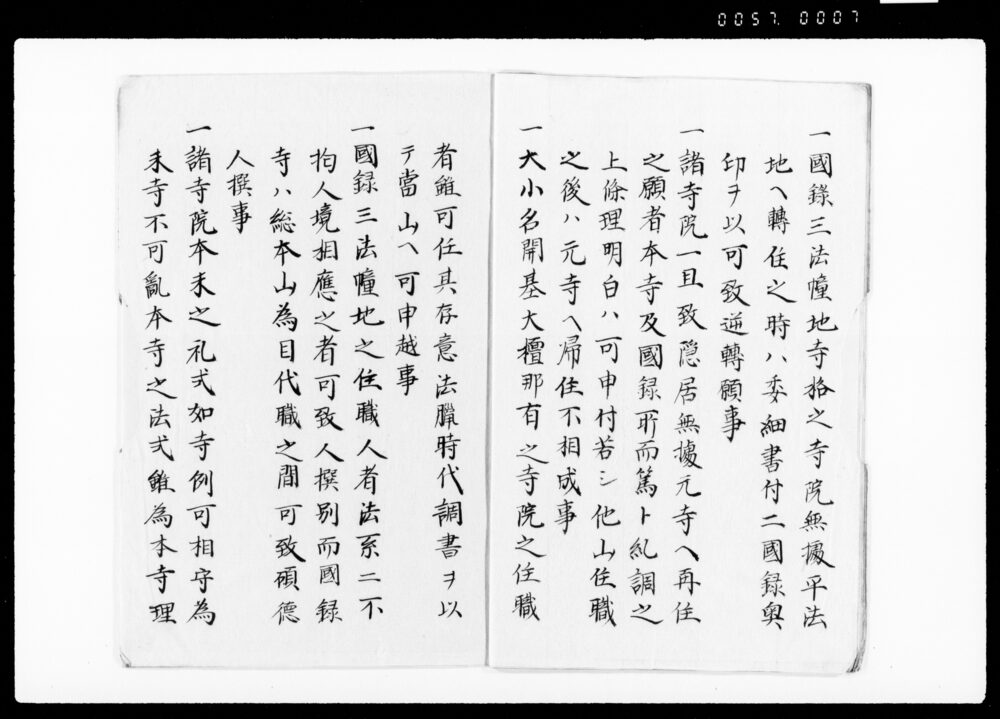 0057. 0007
一國錄三法幢地寺格之寺院無據平法
地ヘ轉住之時ハ委細書付ニ國録奥
印ヲ以可致逆轉願事
一諸寺院一旦致隠居無據元寺ヘ再住
之願者本寺及國録所而篤ト糺調之
上條理明白ハ可申付若シ他山住職
之後ハ元寺ヘ帰住不相成事
一大小名開基大檀那有之寺院之住職
者雖可任其存意法臘時代調書ヲ以
テ當山ヘ可申越事
一國録三法幢地之住職人者法系ニ不
拘人境相應之者可致人撰別而國録
寺ハ総本山為目代職之間可致碩德
人撰事
一諸寺院本末之礼式如寺例可相守為
末寺不可亂本寺之法式雖為本寺理